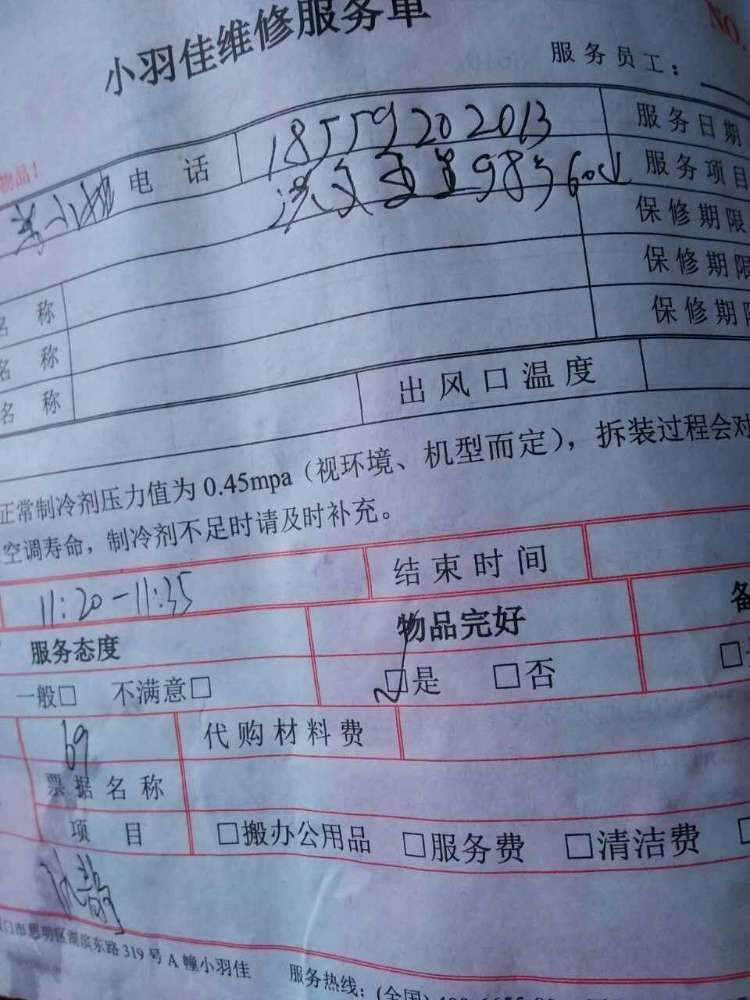 小羽佳维修服务单
NO.
服务员工：
物品！
小姐 电话 18559202013 服务日期
985 服务项目
保修期限
名称 保修期限
名称 保修期限
名称 出风口温度
正常制冷剂压力值为 0.45mpa（视环境、机型而定），拆装过程会对
空调寿命，制冷剂不足时请及时补充。
11:20-11:35 结束时间
服务态度 物品完好 备
一般□ 不满意□ □是 □否 □
69 代购材料费
票据名称
项目 □搬办公用品 □服务费 □清洁费
门市思明区湖滨东路 319 号 A 幢小羽佳 服务热线：(全国)